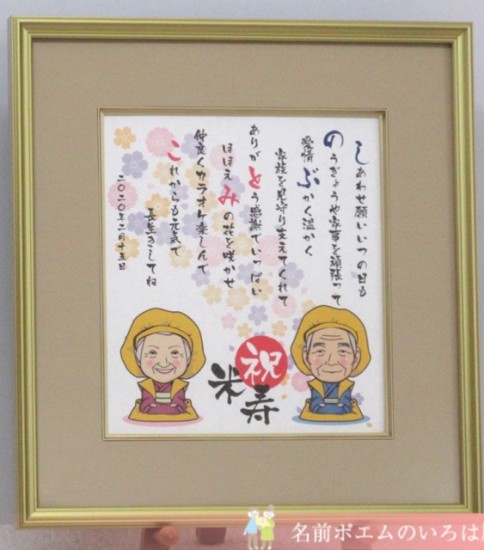 しあわせ願いいつの日も
のうぎょうや家事を頑張って
愛情ぶかく温かく
家族を見守り支えてくれて
ありがとう感謝でいっぱい
ほほえみの花を咲かせ
仲良くカラオケ楽しんで
これからも元気で
長生きしてね
二〇二〇年二月十五日
祝
米寿
名前ポエムのいろは